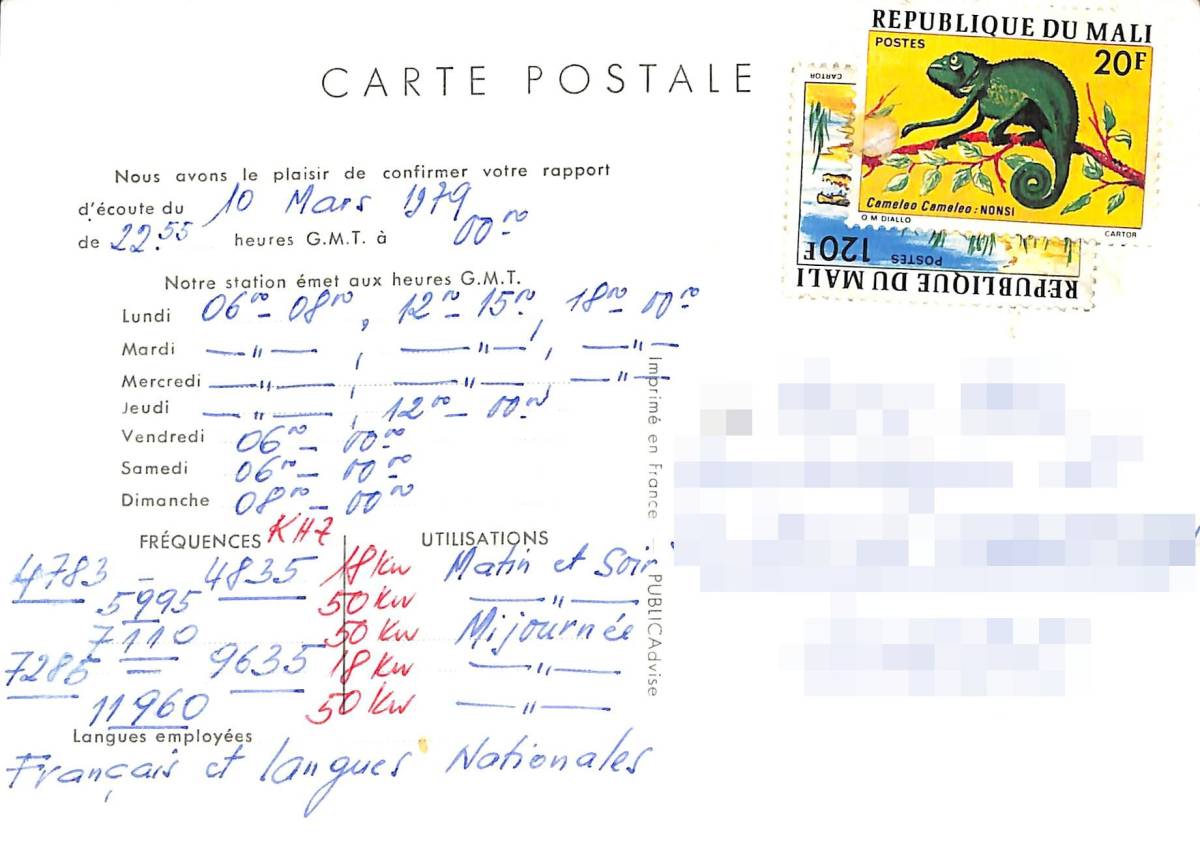 CARTE POSTALE
REPUBLIQUE DU MALI
POSTES
20F
Cameleo Cameleo: NONSI
O M DIALLO
CARTOR
CARTOR
120F
POSTES
REPUBLIQUE DU MALI
Nous avons le plaisir de confirmer votre rapport
d'écoute du 10 Mars 1979
de 22.55 heures G.M.T. à 00.00
Notre station émet aux heures G.M.T.
Lundi 06 00 - 08 00, 12 00 - 15 00, 18 00 - 00 00
Mardi — " — , — " — , — " —
Mercredi — " — , — " — , — " —
Jeudi — " — , 12 00 - 00 00
Vendredi 06 00 - 00 00
Samedi 06 00 - 00 00
Dimanche 08 00 - 00 00
FRÉQUENCES KHZ UTILISATIONS
4783 - 4835 18 kw Matin et Soir
5995 50 kw — " —
7110 50 kw Mijournée
7285 9635 18 kw — " —
11960 50 kw — " —
Langues employées
Français et langues Nationales
Imprimé en France - PUBLICAdvise